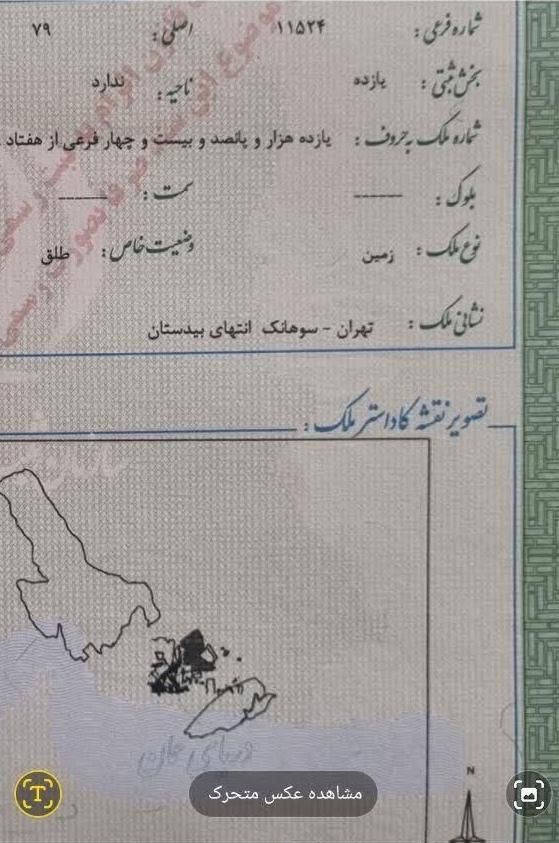 شماره فرعی : ۱۱۵۲۴ اصلی : ۷۹
بخش ثبتی : یازده ناحیه : ندارد
شماره ملک به حروف : یازده هزار و پانصد و بیست و چهار فرعی از هفتاد
بلوک : -------- سمت : --------
نوع ملک : زمین وضعیت خاص : طلق
نشانی ملک : تهران - سوهانک انتهای بیدستان
تصویر نقشه کاداستر ملک :
دریای عمان
N
مشاهده عکس متحرک
T